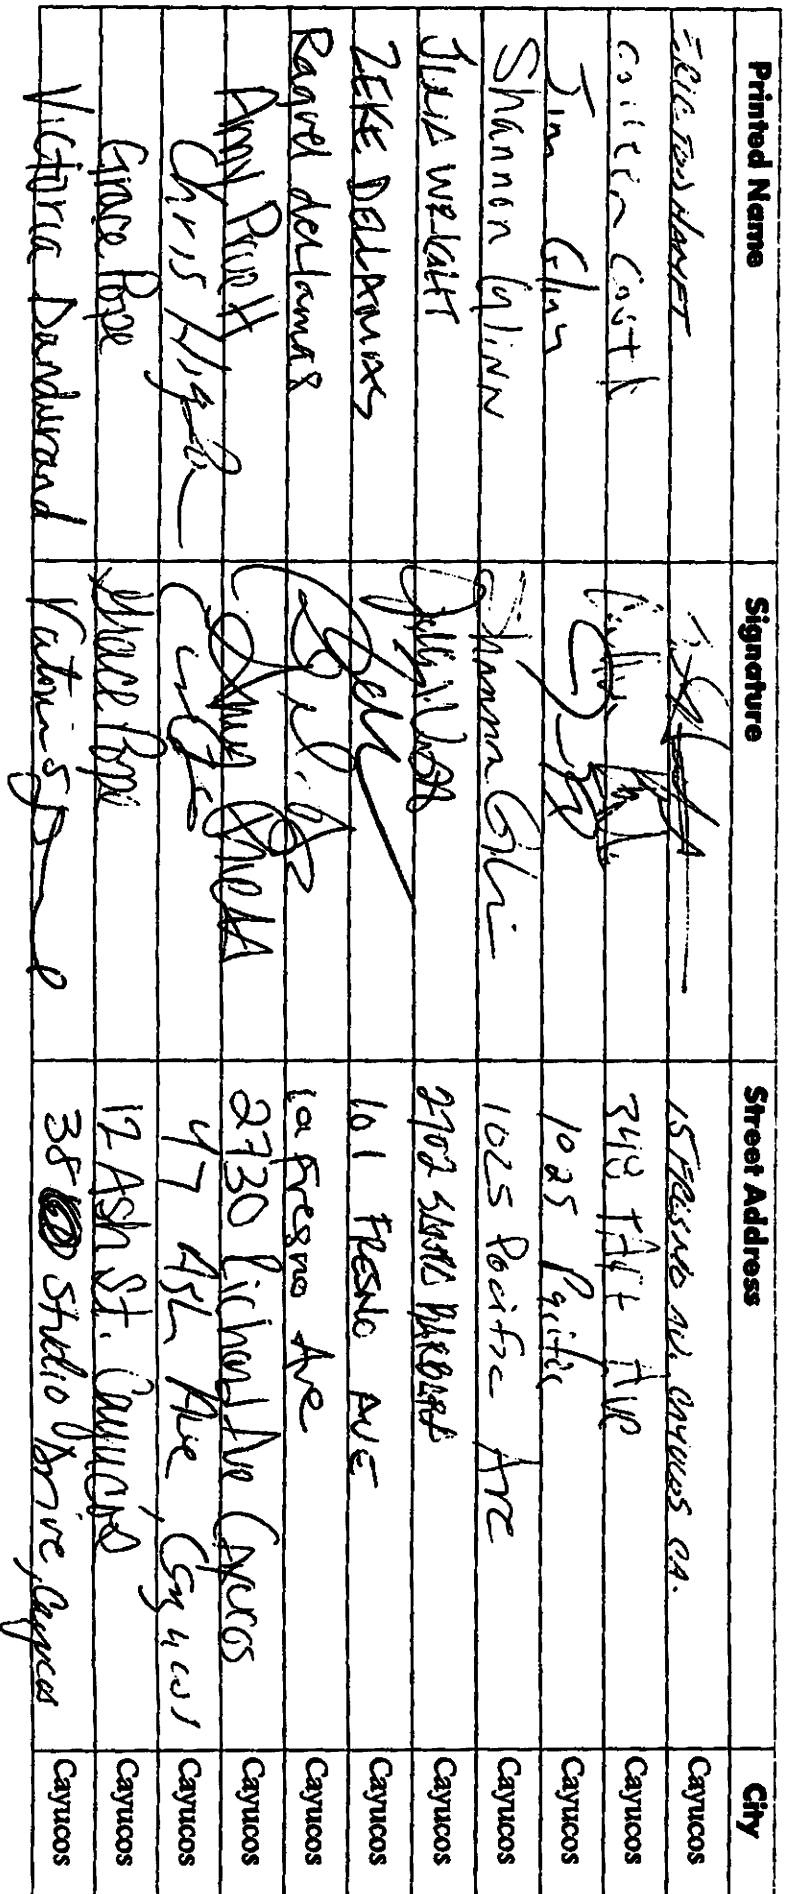 Printed Name Signature Street Address City
15 FRESNO AV. CAYUCOS CA. Cayucos
Taft Cayucos
Jim Glinn 1025 Pacific Cayucos
Shannon Glinn 1025 Pacific Ave Cayucos
JULIA WRIGHT 2702 SANTA BARBARA Cayucos
ZEKE DELAMAS 101 FRESNO AVE Cayucos
Raquel delamas Fresno Ave Cayucos
Amy Pruett Amy Pruett 2730 Richard Ave Cayucos Cayucos
Chris 47 Ash Ave, Cayucos Cayucos
Grace Pope Grace Pope 12 Ash St. Cayucos Cayucos
Victoria Dandurand 38 Studio Drive, Cayucos Cayucos